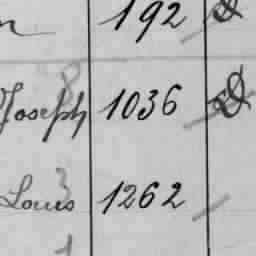 n 192 D
8
Joseph 1036 D
3
Louis 1262
1